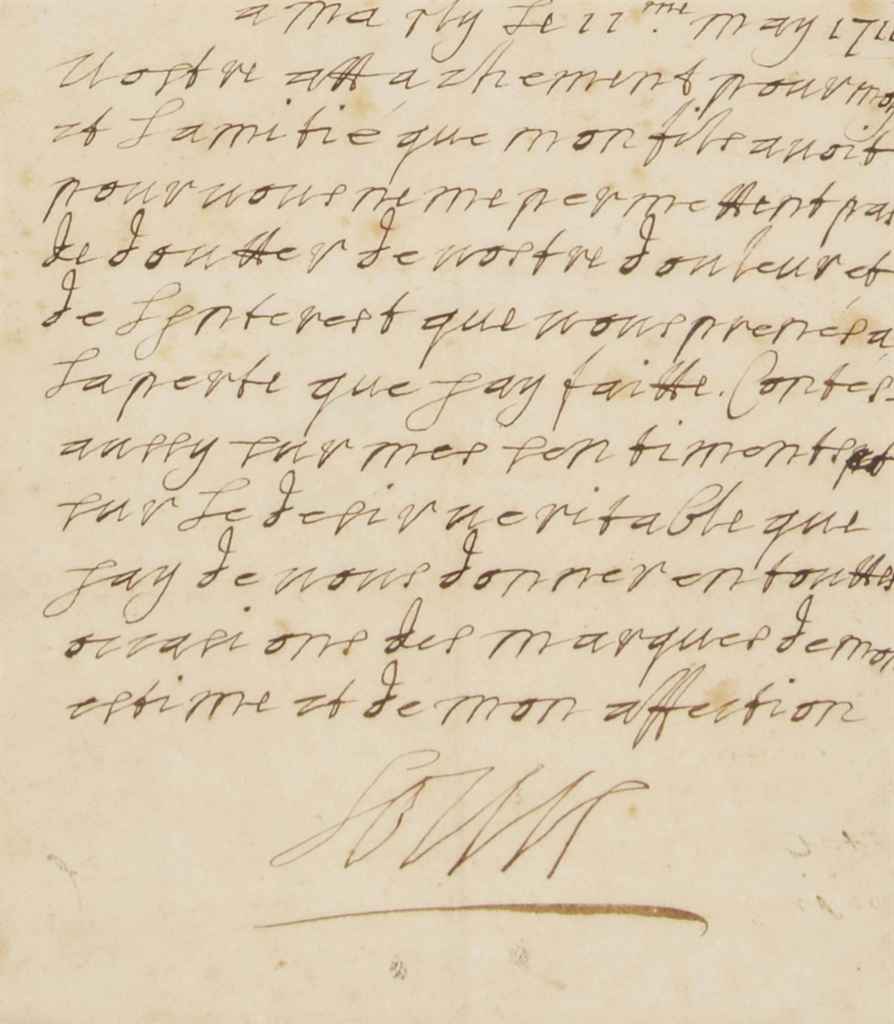 a marly le 11.me may 171
Vostre attachement pour mo
et lamitié que mon fils avoit
pour vous ne me permettent pa
de doutter de vostre douleur et
de lynterest que vous prenés a
la perte que jay faitte. Contés
aussy sur mes sentiments et
sur le desir veritable que
jay de vous donner en touttes
occasions des marques de mon
estime et de mon affection
Louis